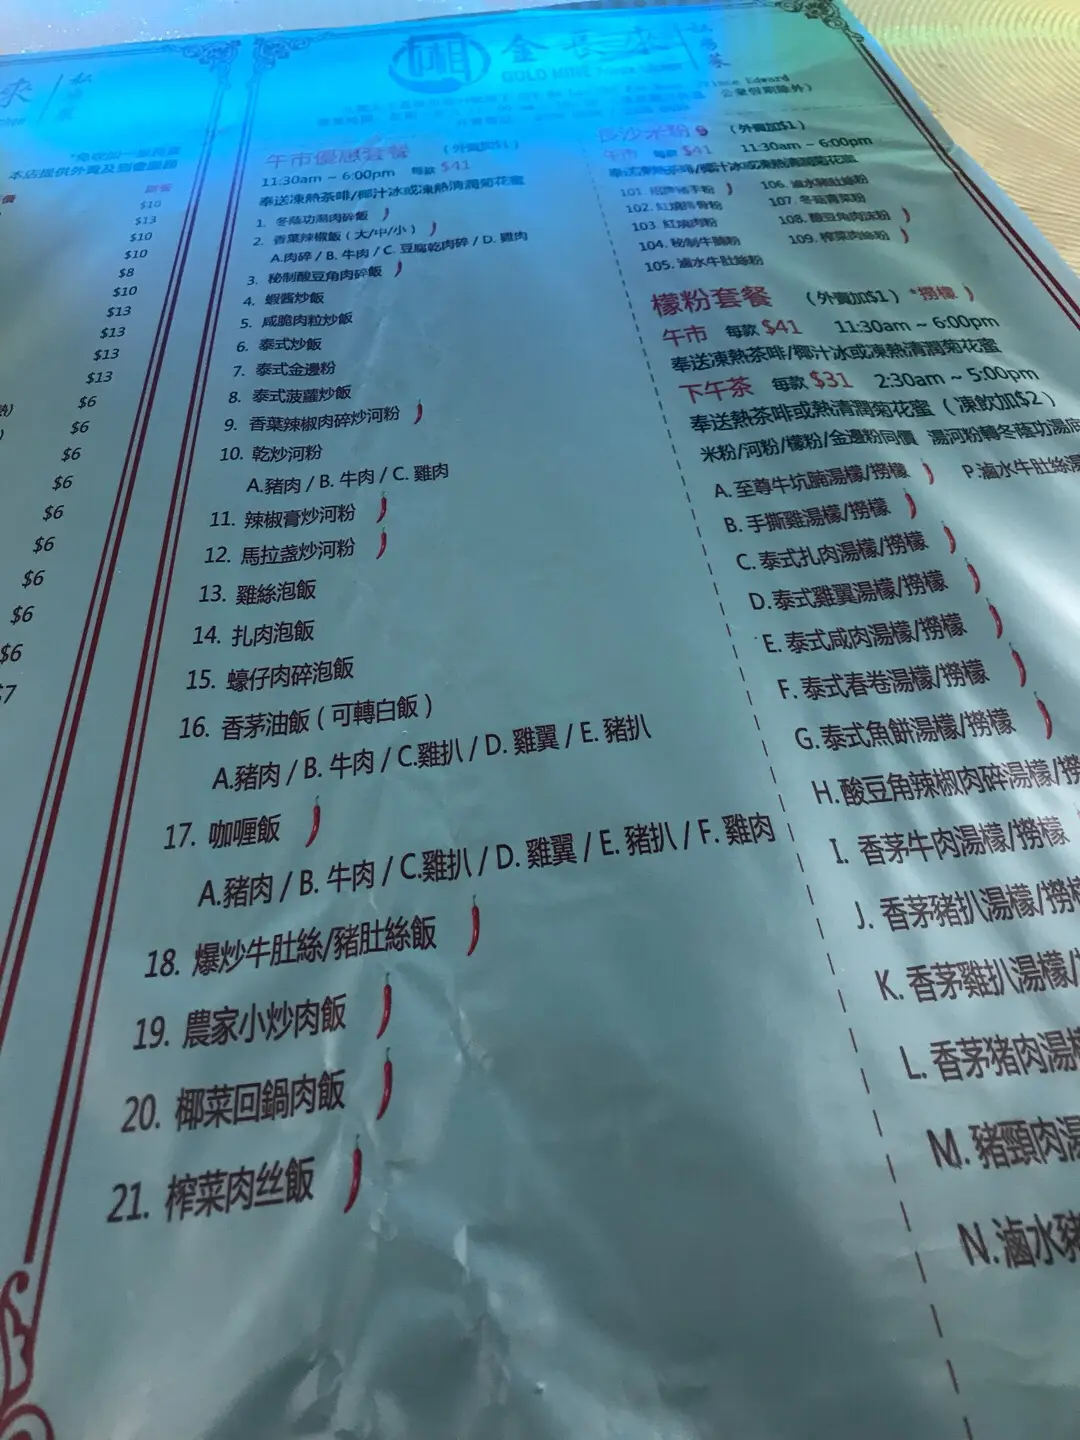 來
本店提供外賣及到會服務
$10
$13
$10
$10
$8
$10
$13
$13
$13
$13
$6
$6
$6
$6
$6
$6
$6
$6
$6
$7
金長來
GOLD MINE
Prince Edward
公眾假期除外)
午市優惠套餐 (外賣加$1)
11:30am ~ 6:00pm 每款 $41
奉送凍熱茶啡/椰汁冰或凍熱清潤菊花蜜
1. 冬蔭功湯肉碎飯
2. 香葉辣椒飯 (大/中/小)
A.肉碎 / B. 牛肉 / C. 豆腐乾肉碎 / D. 雞肉
3. 秘制酸豆角肉碎飯
4. 蝦醬炒飯
5. 咸脆肉粒炒飯
6. 泰式炒飯
7. 泰式金邊粉
8. 泰式菠蘿炒飯
9. 香葉辣椒肉碎炒河粉
10. 乾炒河粉
A.豬肉 / B. 牛肉 / C. 雞肉
11. 辣椒膏炒河粉
12. 馬拉盞炒河粉
13. 雞絲泡飯
14. 扎肉泡飯
15. 蠔仔肉碎泡飯
16. 香茅油飯 (可轉白飯)
A.豬肉 / B. 牛肉 / C.雞扒 / D. 雞翼 / E. 豬扒
17. 咖喱飯
A.豬肉 / B. 牛肉 / C.雞扒 / D. 雞翼 / E. 豬扒 / F. 雞肉
18. 爆炒牛肚絲/豬肚絲飯
19. 農家小炒肉飯
20. 椰菜回鍋肉飯
21. 榨菜肉丝飯
長沙米粉 (外賣加$1)
午市 每款 $41 11:30am ~ 6:00pm
奉送凍熱茶啡/椰汁冰或凍熱清潤菊花蜜
102. 紅燒排骨粉
103. 紅燒肉粉
104. 秘制牛腩粉
105. 滷水牛肚絲粉
106. 滷水豬肚絲粉
107. 冬菇青菜粉
108. 酸豆角肉沫粉
109. 榨菜肉絲粉
檬粉套餐 (外賣加$1) *撈檬
午市 每款 $41 11:30am ~ 6:00pm
奉送凍熱茶啡/椰汁冰或凍熱清潤菊花蜜
下午茶 每款 $31 2:30am ~ 5:00pm
奉送熱茶啡或熱清潤菊花蜜 (凍飲加$2)
米粉/河粉/檬粉/金邊粉同價 湯河粉轉冬蔭功湯底
A. 至尊牛坑腩湯檬/撈檬 P.滷水牛肚絲湯
B. 手撕雞湯檬/撈檬
C. 泰式扎肉湯檬/撈檬
D. 泰式雞翼湯檬/撈檬
E. 泰式咸肉湯檬/撈檬
F. 泰式春卷湯檬/撈檬
G. 泰式魚餅湯檬/撈檬
H. 酸豆角辣椒肉碎湯檬/撈
I. 香茅牛肉湯檬/撈檬
J. 香茅豬扒湯檬/撈檬
K. 香茅雞扒湯檬/
L. 香茅猪肉湯檬
M. 豬頸肉湯
N. 滷水豬